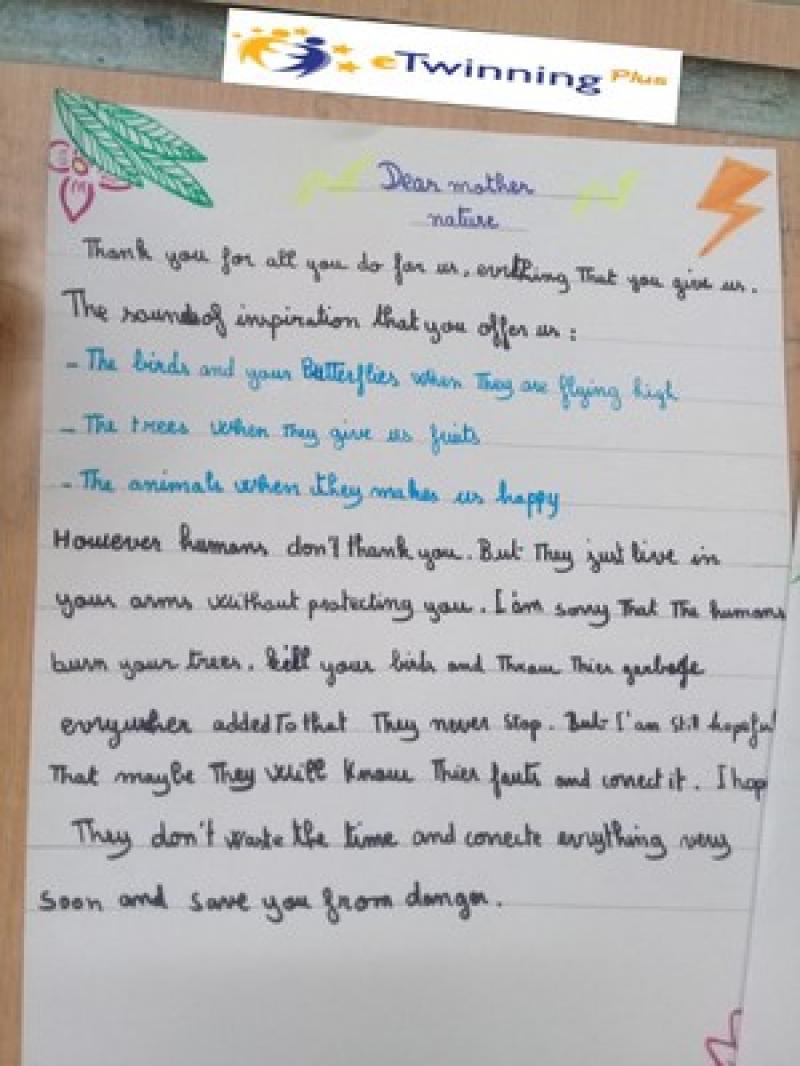 eTwinning Plus
Dear mother
nature
Thank you for all you do for us, evrthing That you give us.
The soundsof inspiration that you offer us :
- The birds and your Butterflies when They are flying high
- The trees when they give us fruits
- The animals when they makes us happy
However humans don't thank you. But They just live in
your arms without protecting you. I am sorry That The humans
burn your trees, kill your birds and Throw Thier garbage
evrywher added To that They never stop. But I'am still hopeful
That maybe They will Know Thier fauts and conect it. I hop
They don't waste the time and conecte evrything very
soon and save you from danger.